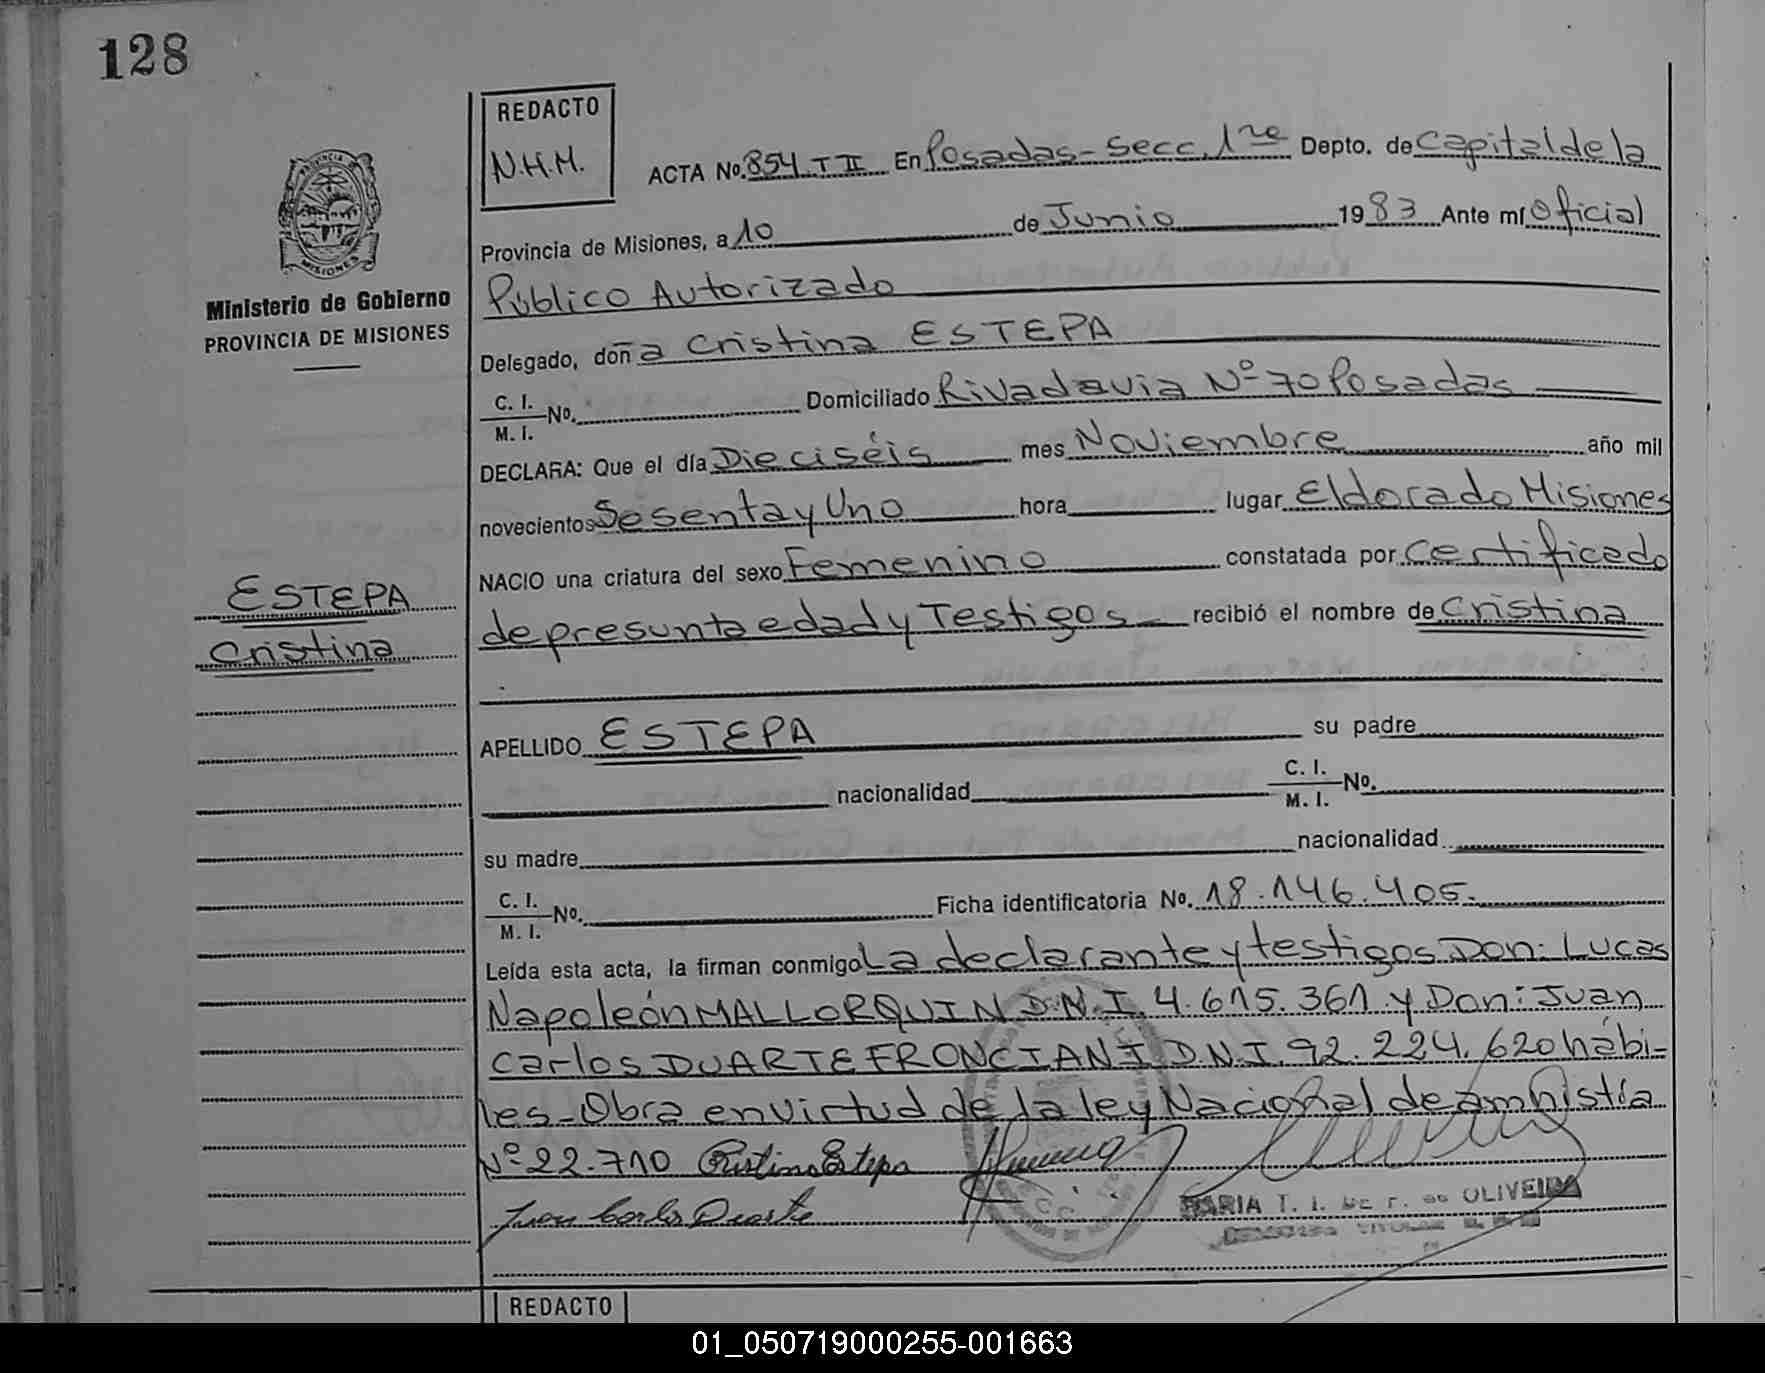 128
REDACTO
N.H.M.
ACTA No. 854. T II En Posadas - Secc. 1ra Depto. de Capital de la
PROVINCIA DE
MISIONES
Ministerio de Gobierno
PROVINCIA DE MISIONES
Provincia de Misiones, a 10 de Junio 1983 Ante mí Oficial
Público Autorizado
Delegado, doña Cristina ESTEPA
C. I.
M. I. No. Domiciliado Rivadavia Nº 70 Posadas
DECLARA: Que el día Dieciséis mes Noviembre año mil
novecientos Sesenta y Uno hora lugar Eldorado Misiones
NACIO una criatura del sexo Femenino constatada por Certificado
de presunta edad y Testigos recibió el nombre de Cristina
ESTEPA
Cristina
APELLIDO ESTEPA su padre
nacionalidad C. I.
M. I. No.
su madre nacionalidad
C. I.
M. I. No. Ficha identificatoria No. 18.146.405.
Leída esta acta, la firman conmigo La declarante y testigos Don: Lucas
Napoleón MALLORQUIN D.N.I. 4.615.361 y Don: Juan
Carlos DUARTE FRONCIANI D.N.I. 92.224.620 hábi-
les - Obra en virtud de la ley Nacional de amnistía
Nº 22.710 Cristina Estepa
Juan Carlos Duarte
MARIA T. I. DE F. de OLIVEIRA
REDACTO
01_050719000255-001663